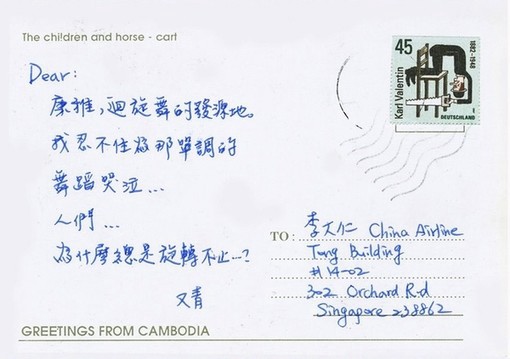 The children and horse - cart
Dear:
康雅，迴旋舞的發源地。
我忍不住為那單調的
舞蹈哭泣...
人們...
為什麼總是旋轉不止...?
又青
GREETINGS FROM CAMBODIA
45
1882-1948
Karl Valentin
DEUTSCHLAND
TO : 李大仁 China Airline
Tong Building
#14-02
302 Orchard Rd
Singapore 238862